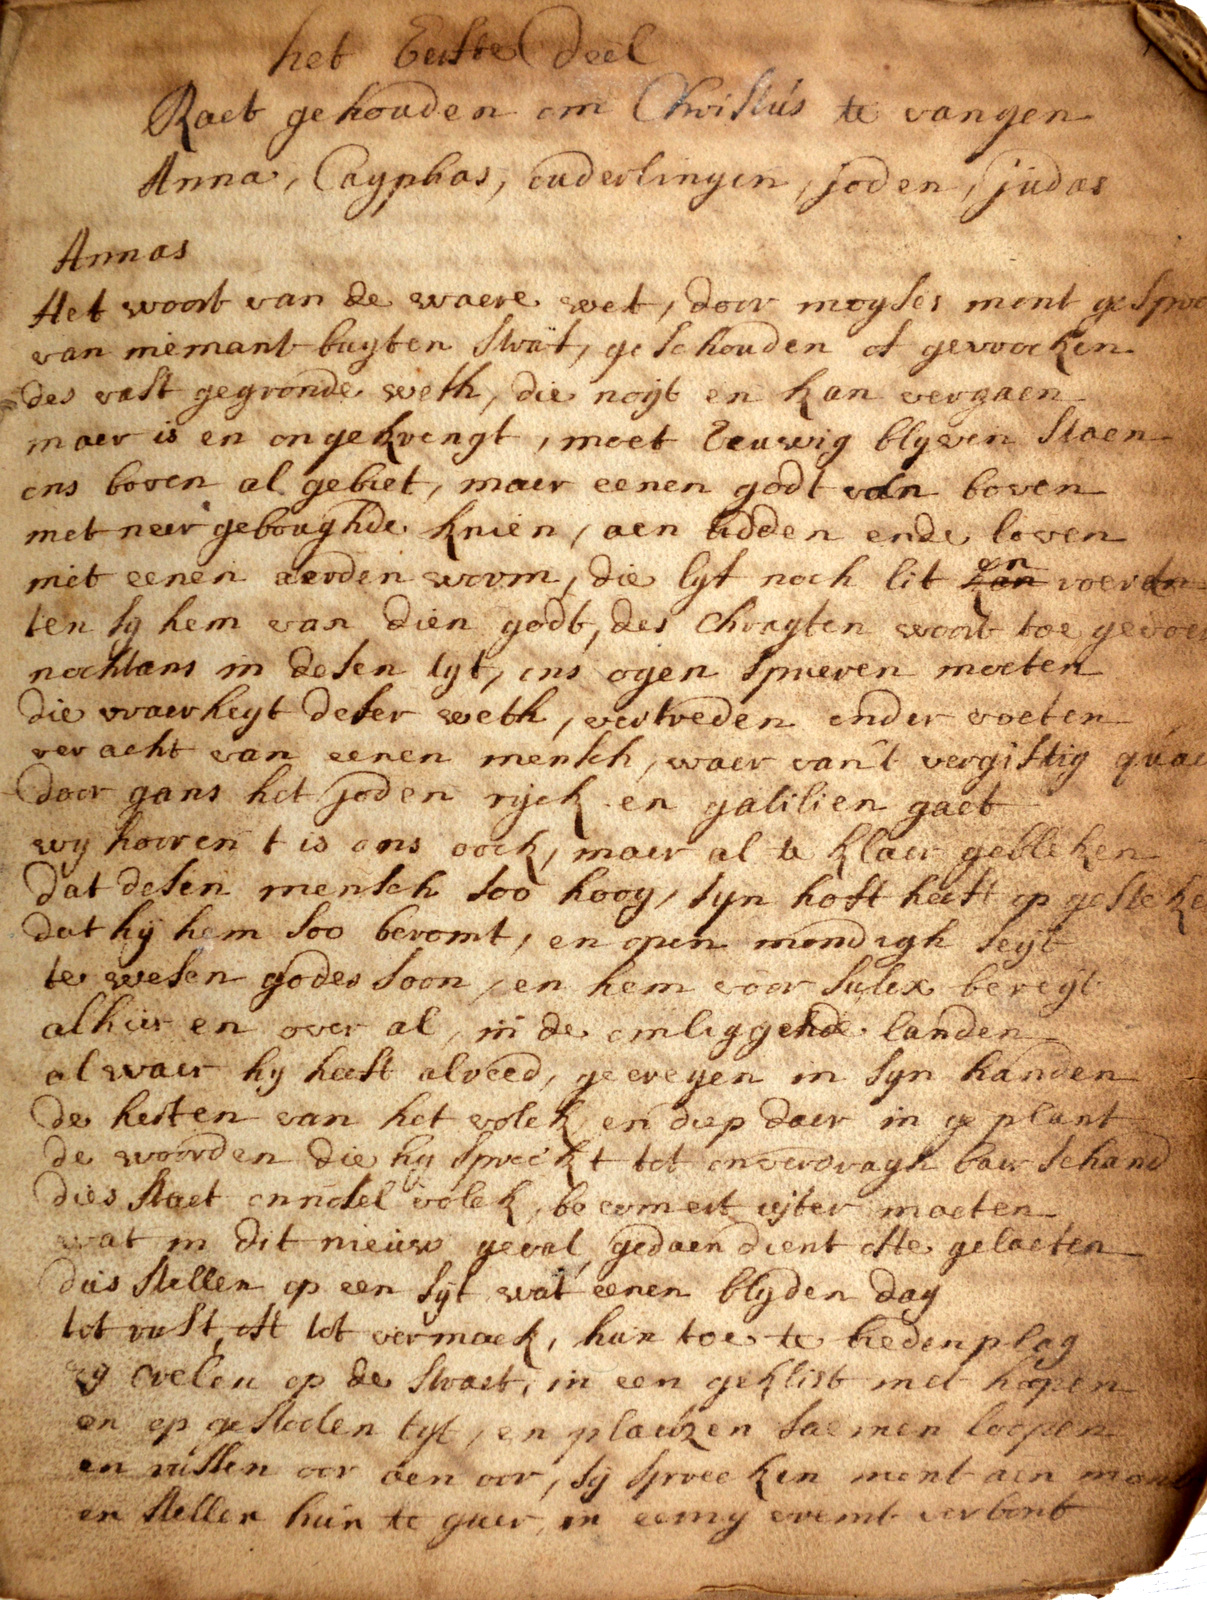 het Eerste deel
Raet gehouden om Christus te vangen
Anna, Cayphas, ouderlingen, joden, judas
Annas
Het woort van de waere wet, door moyses mont gespro
van niemant buyten straf, geschouden of gevroeken
des vast gegronde weth, die noijt en kan vergaen
maer is en ongekrengt, moet Eeuwig blyven staen
ons boven al gebiet, maer eenen godt van boven
met neer geboughde knien, aen bidden ende loven
met eenen aerden worm, die lyf noch lit en voerden
ten sy hem van dien godt, des Chragten woort toe gevoe
nochtans in desen tyt, ons ogen spueren moeten
die waerheyt deser weth, vertreden onder voeten
veracht van eenen mensch, waer van't vergiftig quae
door gans het joden rijck en galilien gaet
wy hooren t is ons oock, maer al te klaer gebleken
dat desen mensch soo hoog, syn hoft heeft op gesteke
dat hy hem soo beromt, en open mondigh seijt
te wesen godes soon, en hem voor sulex bereijt
alhier en over al, in de omliggende landen
alwaer hy heeft alreed, gecregen in syn handen
de herten van het volck, en diep daer in geplant
de woorden die hy spreekt tot onverdragh baer schand
dies staet onnosel volck, becomert uijter maeten
wat in dit nieuw geval, gedaen dient ofte gelaeten
dus stellen op een syt wat eenen blyden dag
tot rust, oft tot vermaek, hun toe te bieden plag
sy op de straet, in een geklist met hopen
en op gesloten tyt, en plaetzen saemen loopen
en russen oor aen oor, sy spreeken mont aen mont
en stellen hun te gaer, in eenig vremt verbont